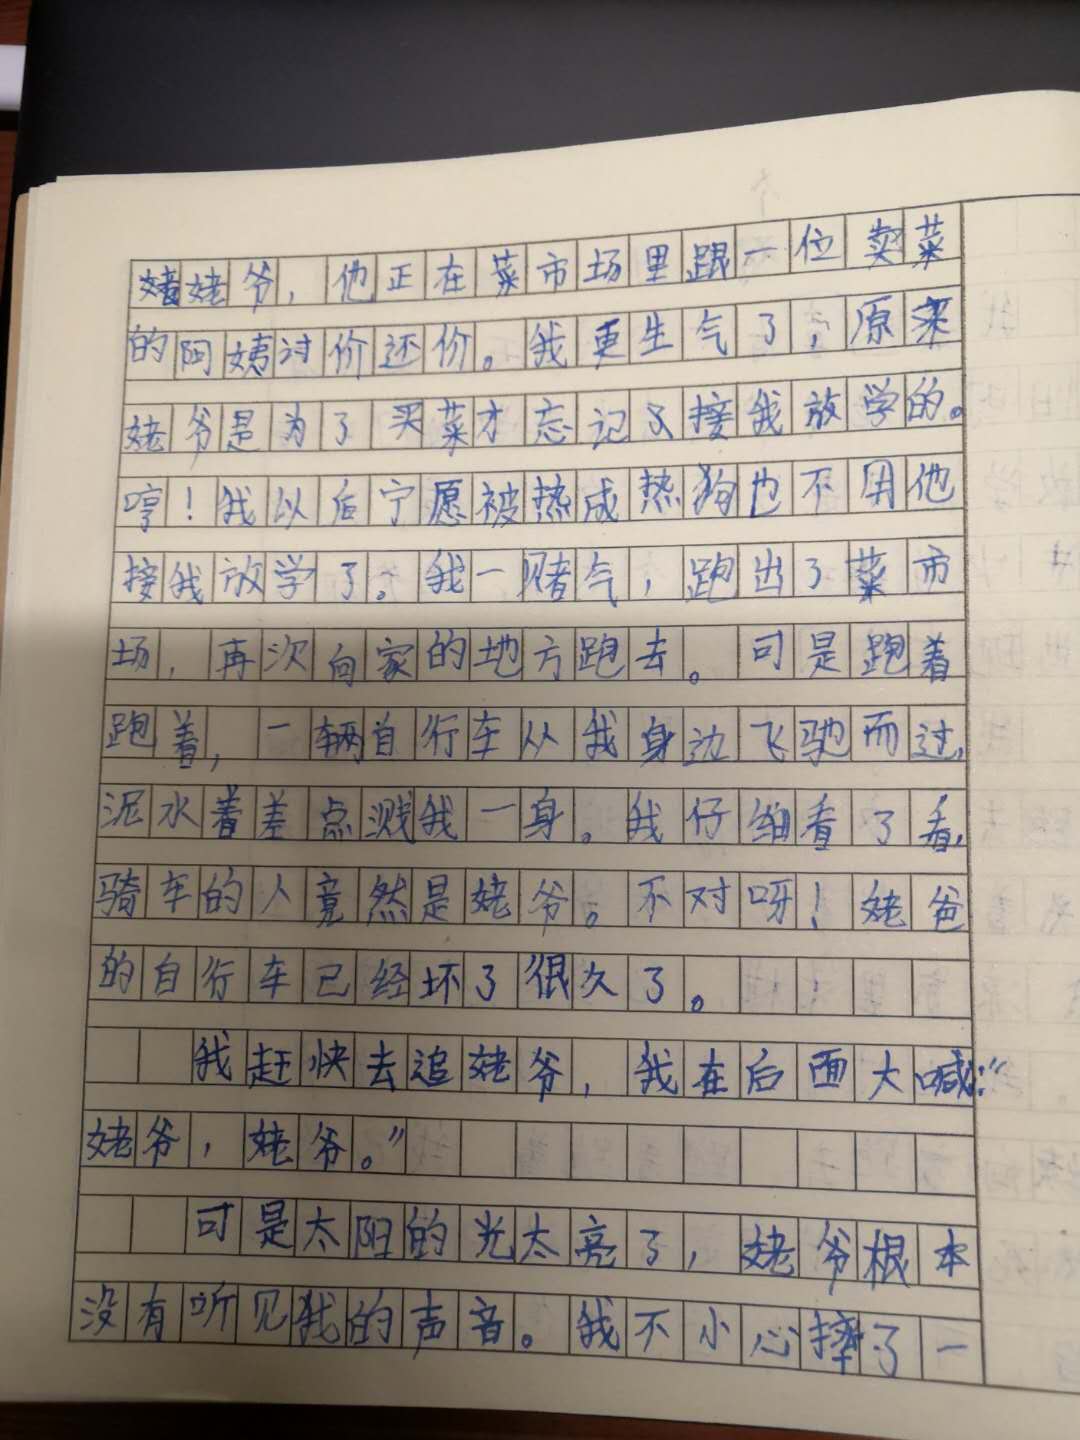 姥姥爷，他正在菜市场里跟一位卖菜
的阿姨讨价还价。我更生气了，原来
姥爷是为了买菜才忘记了接我放学的。
哼！我以后宁愿被热成热狗也不用他
接我放学了。我一赌气，跑出了菜市
场，再次向家的地方跑去。可是跑着
跑着，一辆自行车从我身边飞驰而过，
泥水着差点溅我一身。我仔细看了看，
骑车的人竟然是姥爷。不对呀！姥爸
的自行车已经坏了很久了。
我赶快去追姥爷，我在后面大喊：“
姥爷，姥爷。”
可是太阳的光太亮了，姥爷根本
没有听见我的声音。我不小心摔了一